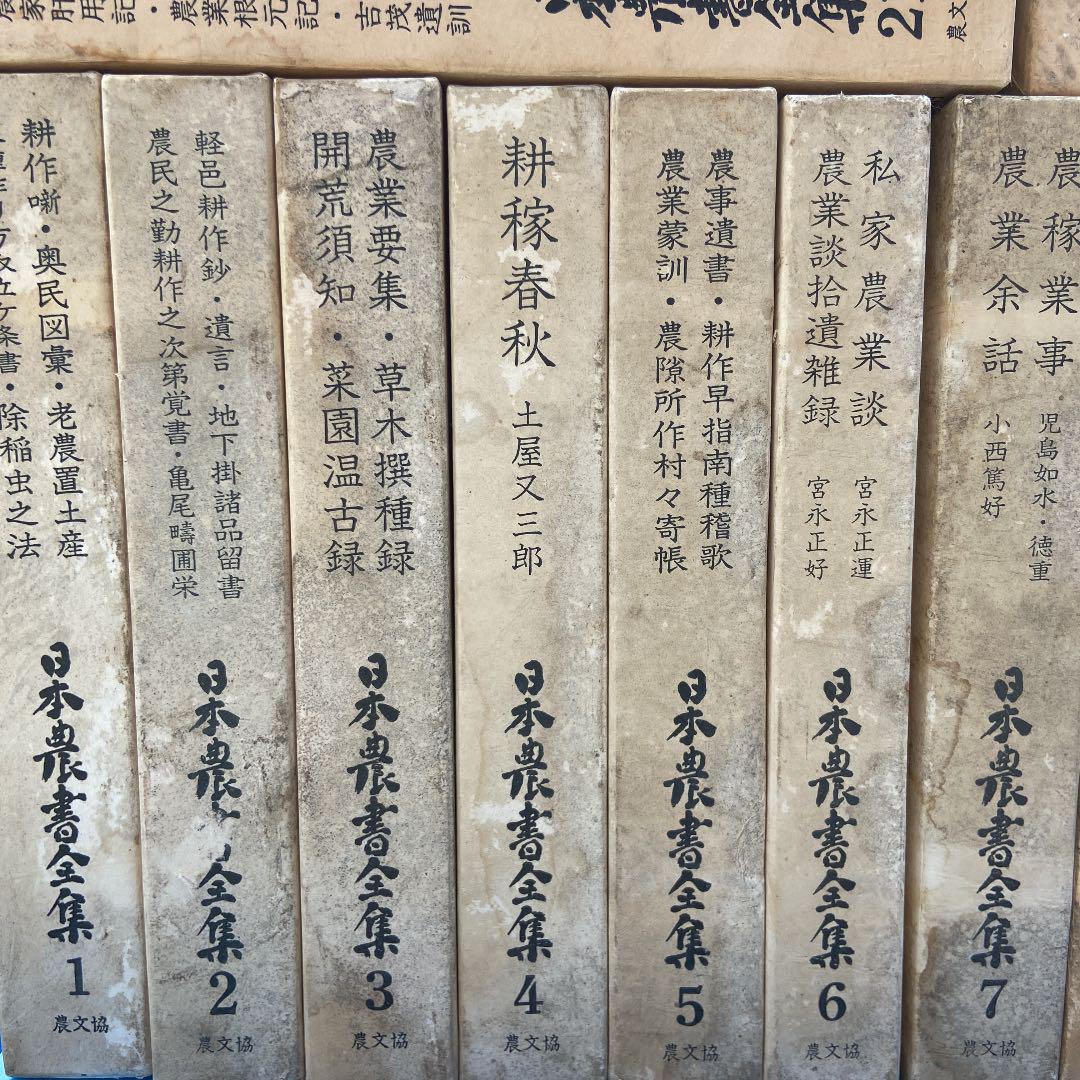 吉茂遺訓
日本農書全集 2
農文協
耕作噺・奥民図彙・老農置土産
除稲虫之法
日本農書全集
1
農文協
軽邑耕作鈔・遺言・地下掛諸品留書
農民之勤耕作之次第覚書・亀尾疇圃栄
日本農 全集
2
農文協
農業要集・草木撰種録
開荒須知・菜園温古録
日本農書全集
3
農文協
耕稼春秋
土屋又三郎
日本農書全集
4
農文協
農事遺書・耕作早指南種稽歌
農業蒙訓・農隙所作村々寄帳
日本農書全集
5
農文協
私家農業談
宮永正運
農業談拾遺雑録
宮永正好
日本農書全集
6
農文協
農稼業事
児島如水・徳重
農業余話
小西篤好
日本農書全集
7
農文協